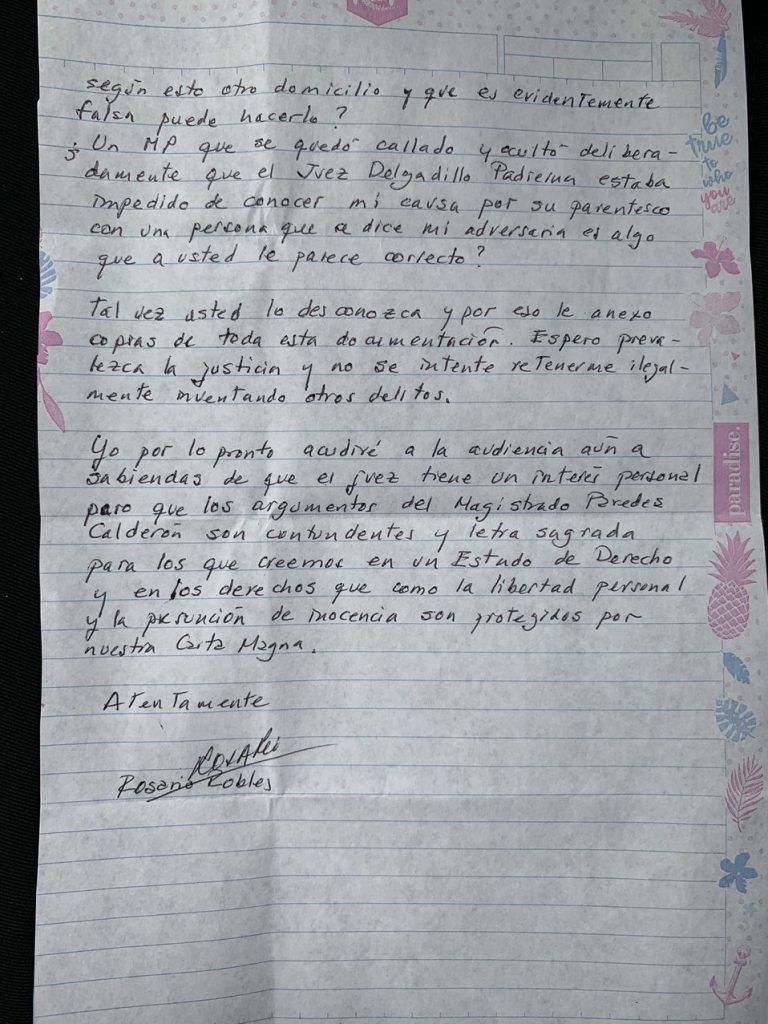 según esto otro domicilio y que es evidentemente
falsa puede hacerlo?
¿Un MP que se quedó callado y ocultó delibera-
damente que el Juez Delgadillo Padierna estaba
impedido de conocer mi causa por su parentesco
con una persona que se dice mi adversaria es algo
que a usted le parece correcto?
Tal vez usted lo desconozca y por eso le anexo
copias de toda esta documentación. Espero preva-
lezca la justicia y no se intente retenerme ilegal-
mente inventando otros delitos.
Yo por lo pronto acudiré a la audiencia aún a
sabiendas de que el juez tiene un interés personal
paro que los argumentos del Magistrado Paredes
Calderón son contundentes y letra sagrada
para los que creemos en un Estado de Derecho
y en los derechos que como la libertad personal
y la presunción de inocencia son protegidos por
nuestra Carta Magna.
Atentamente
Rosario Robles
be
true
to
who
you
are
paradise.